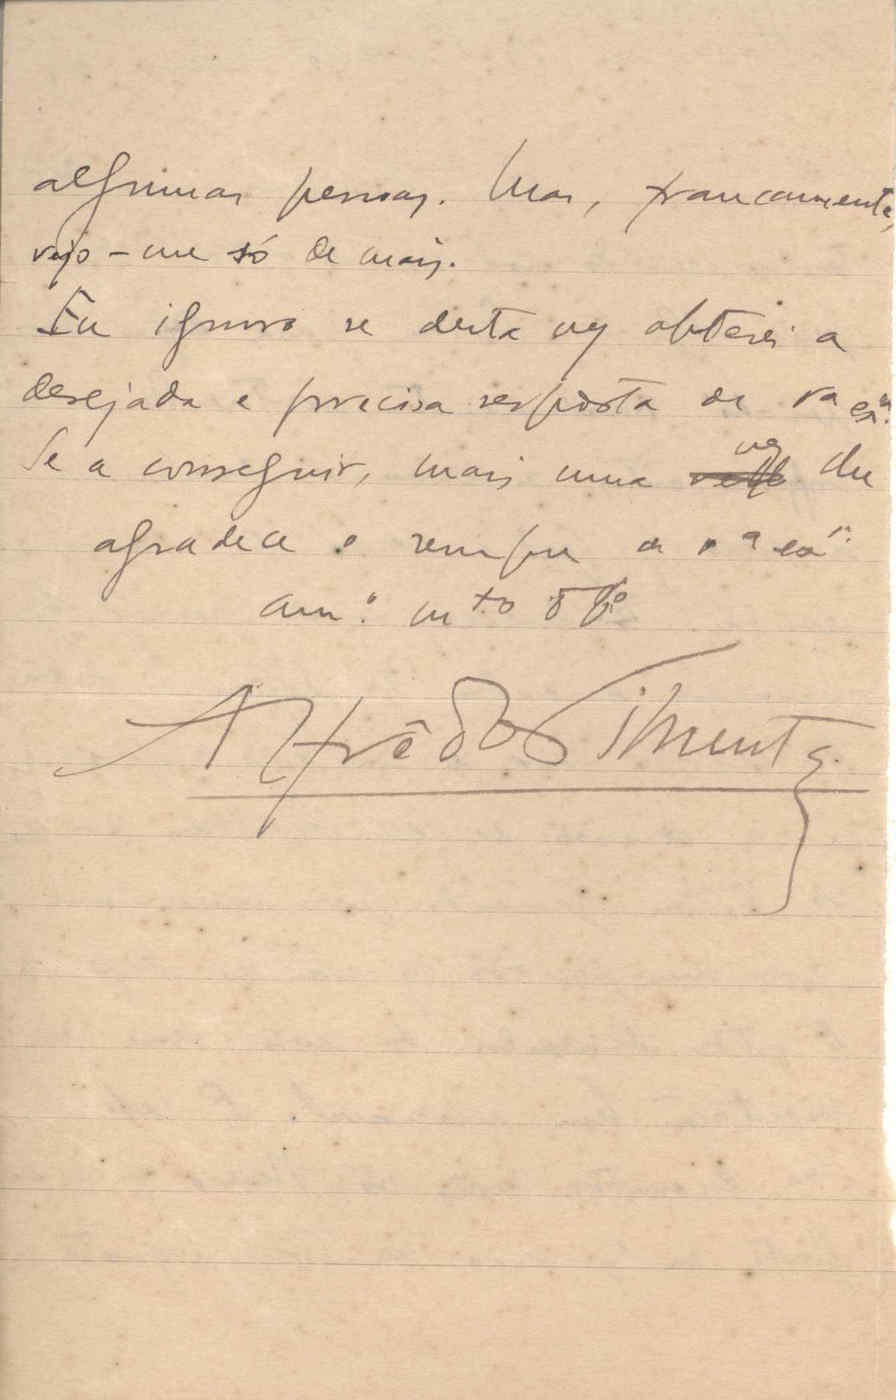 algumas pessoas. Mas, francamente,
vejo-me só de mais.
Eu ignoro se desta vez obterei a
desejada e precisa resposta de va exa.
Se a conseguir, mais uma vez lhe
agradece o sempre de va exa
am.o mto
Alfrêdo Pimenta